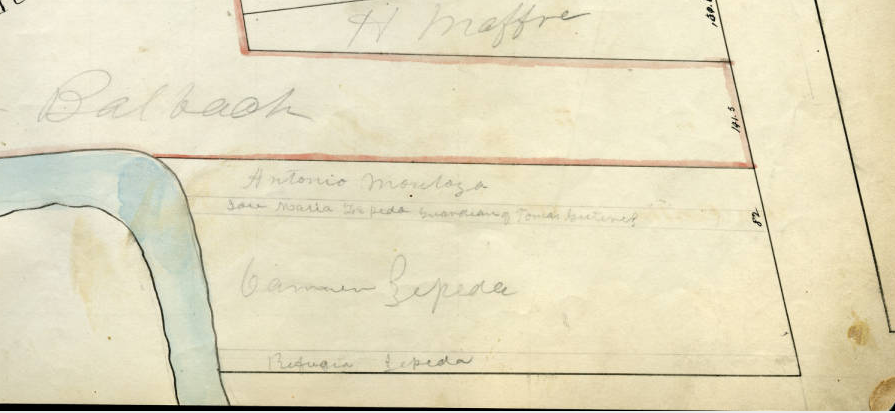 H Maffre
141.5
Balbach
Antonio Montoya
Jose Maria Zepeda Guardian of Tomas Gutierrez
82
Carmen Zepeda
Refugia Zepeda